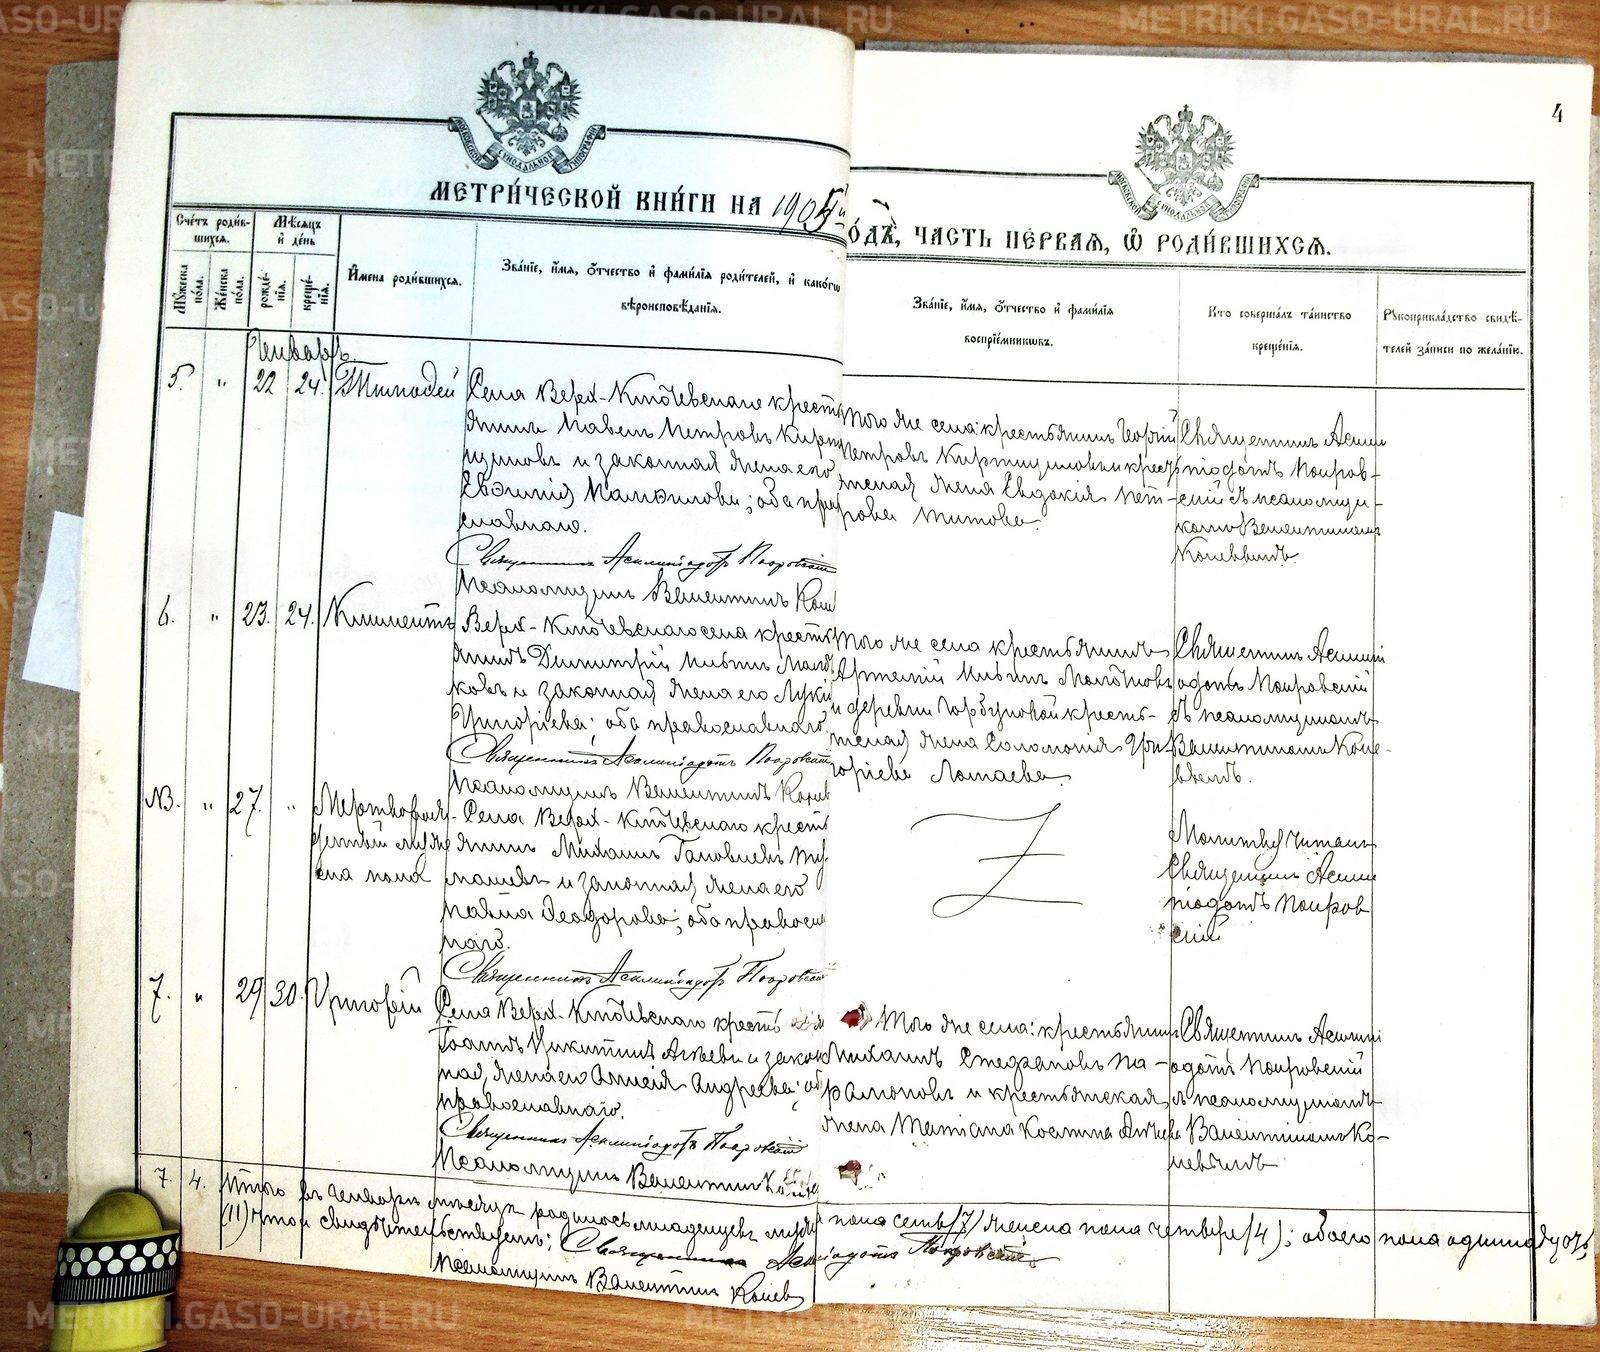 METRIKI.GASO-URAL.RU
METRIKI.GASO-URAL.RU
4
МОСКОВСКОЙ СѴНОДАЛЬНОЙ ТИПОГРАФІИ
МОСКОВСКОЙ СѴНОДАЛЬНОЙ ТИПОГРАФІИ
МЕТРИ́ЧЕСКОЙ КНИ́ГИ НА 1905й
ГО́ДЪ, ЧАСТЬ ПЕ́РВАЯ, Ѿ РОДИ́ВШИХСЯ.
Сче́тъ роди́в-
шихся.
Му́жеска по́ла.
Же́нска по́ла.
Мѣ́сяцъ и де́нь
рожде́-
нія.
креще́-
нія.
И҆мена роди́вшихся.
Зва́ніе, и҆́мя, ѻ҆́тчество и҆ фами́лія роди́телей, и҆ како́гѡ
вѣроисповѣ́данія.
Зва́ніе, и҆́мя, ѻ҆́тчество и҆ фами́лія
воспріе́мникѡвъ.
Кто̀ соверша́лъ та́инство
креще́нія.
Рукоприкла́дство свидѣ́-
телей за́писи по жела́нію.
Январь.
5. " 22 24.
Села Верх-Ключевскаго крест
янинъ Павелъ Петровъ Кирп
щиковъ и законная жена его
Евѳимія ; оба пра
славнаго.
Священникъ Асклипіодотъ Покровскій
Псаломщикъ Валентинъ Кон
Того же села: крестьянинъ Георгій
Петровъ и крест
жена Евдокія Пет-
рова Титова.
Священникъ Аскли
піодотъ Покров-
скій съ псаломщи-
комъ Валентиномъ
Коневымъ.
6. " 23. 24. Климентъ
Верх-Ключевскаго села крест
янинъ Димитрій Ильинъ
ковъ и законная жена его
Григоріева; оба православнаго.
Священникъ Асклипіодотъ Покровскій
Псаломщикъ Валентинъ Конев
Того же села крестьянинъ
Артемій Ильинъ
и деревни Горбуновой кресть-
жена Соломонія Гри-
горіева
Священникъ Асклипі
одотъ Покровскій
съ псаломщикомъ
Валентиномъ Коне-
вымъ.
№. " 27. "
Мертворож
денный муже
ска пола
Села Верх-Ключевскаго крест
янинъ Михаилъ
и законная жена его
Павла Ѳеодорова; оба правосла
наго.
Священникъ Асклипіодотъ Покровскій
Молитву читалъ
Священникъ Аскли
піодотъ Покров
скій
7. " 29 30. Григорій
Села Верх-Ключевскаго кресть
Іоаннъ Никитинъ и закон
ная жена его Андреева; об
православнаго.
Священникъ Асклипіодотъ Покровскій
Псаломщикъ Валентинъ
Того же села: крестьянинъ
Михаилъ Стефановъ Па-
рамоновъ и крестьянская
жена Татіана
Священникъ Асклипі
одотъ Покровскій
съ псаломщикомъ
Валентиномъ Ко-
невымъ
7. 4. Итого въ Январѣ мѣсяцѣ родилось младенцевъ муж пола семь /7/ женска пола четыре /4/; обоего пола одиннадцать
(11) Что и свидѣтельствуемъ: Священникъ Асклипіодотъ Покровскій
Псаломщикъ Валентинъ Конев
METRIKI.GASO-URAL.RU